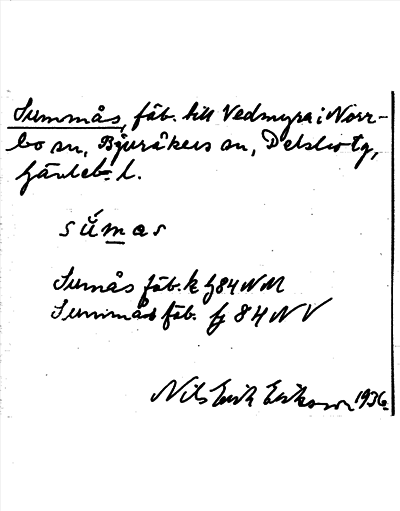 Summås, fäb. till Vedmyra i Norr-
bo sn, Bjuråkers sn, Delsbo tg,
Gävleb. l.
súmas
Sumås fäb. k g84NM
Summås fäb. g 84 NV
Nils Erik Eriksson 1936